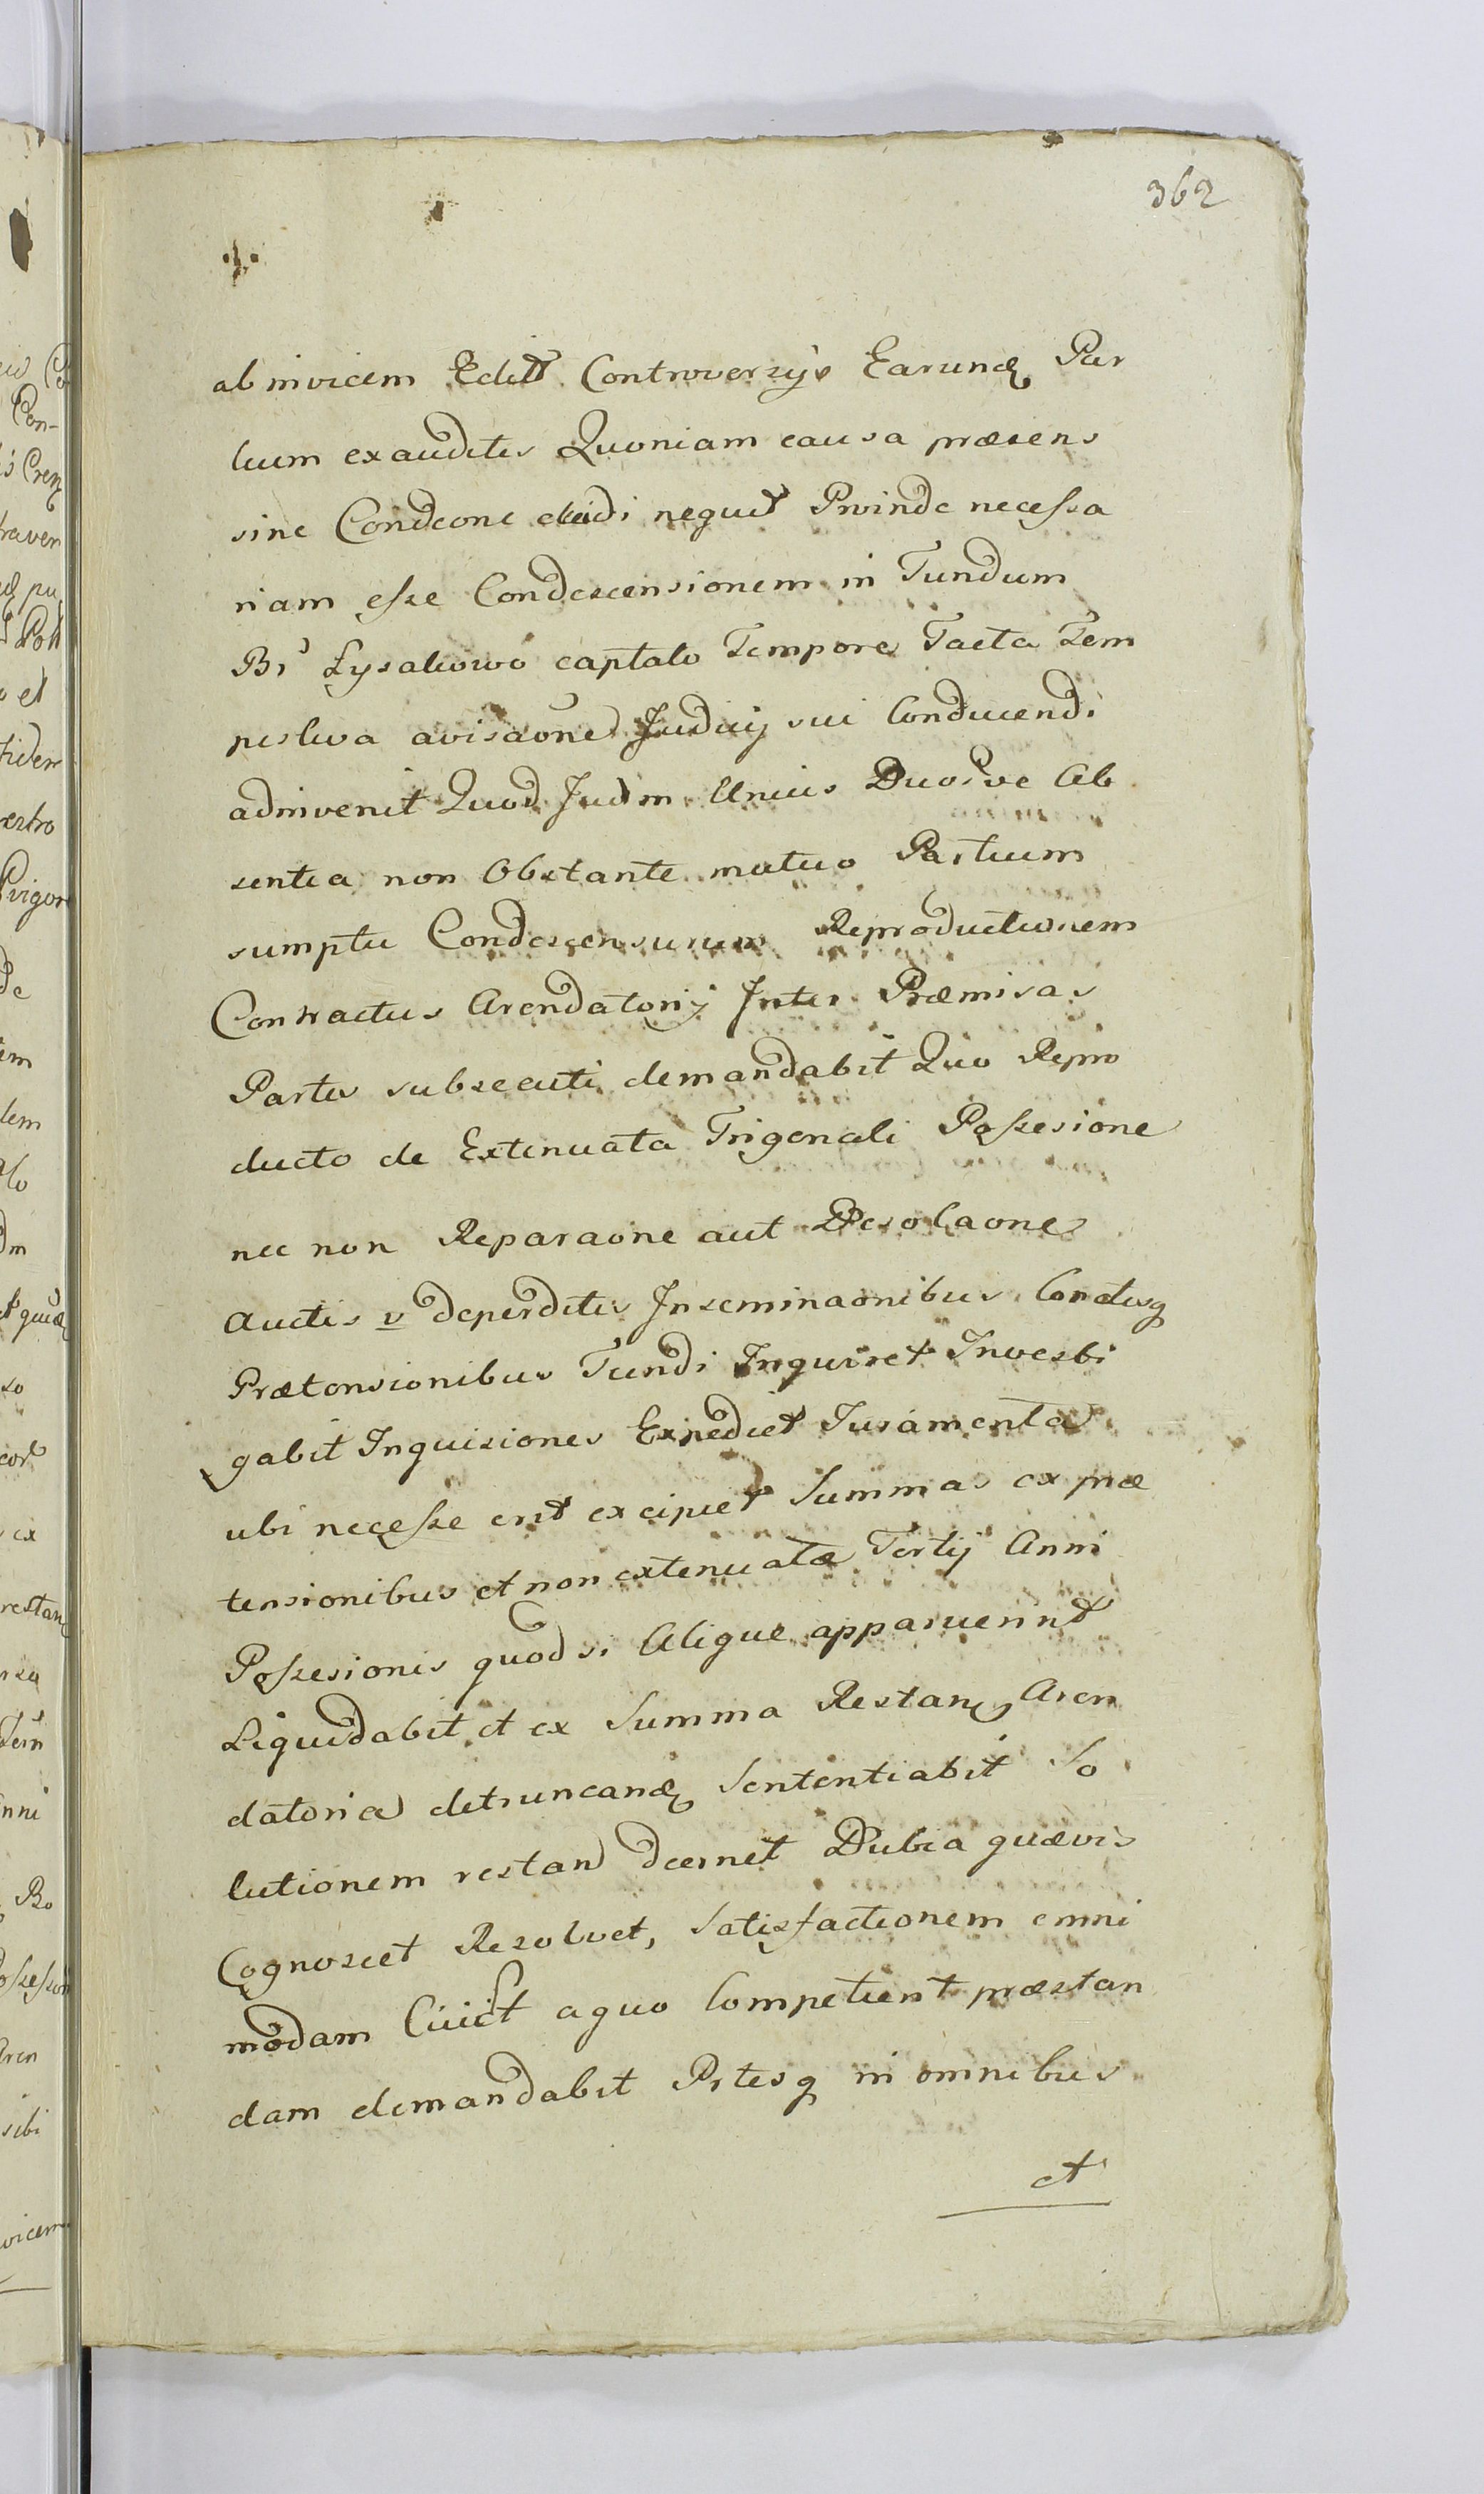 362
ab invicem Edit Controversijs Earund Par
tium exauditis Quoniam causa præsens
sine Condeone elidi nequit Proinde necessa
riam esse Condescensionem in Fundum
Br Lysakowo captato Tempore Facta Tem
pestiva avisaone Judicij sui Conducendi
adinvenit Quod Judm Unius Duorve Ab
sentia non Obstante mutuo Partium
sumptu Condescensurum Reproductionem
Contractus Arendatorij Inter Præmisas
Partes subsecuti demandabit Quo Repro
ducto de Extenuata Trigenali Possesione
nec non Reparaone aut Desolaone
Auctis v deperditis Inseminaonibus
Prætensionibus Fundi Inquiret Investi
gabit Inquisiones Expediet Juramenta
ubi necesse erit excipiet Summas ex præ
tensionibus et non extenuatæ Tertij Anni
Possesionis quod si Aliquæ apparuerint
Liquidabit et ex Summa Restan Aren
datoria detruncand Sententiabit So
lutionem restan decernet Dubia quævis
Cognoscet Resolvet, Satisfactionem omni
modam Cuict a quo Competierit præstan
dam demandabit Prtesq in omnibus
et